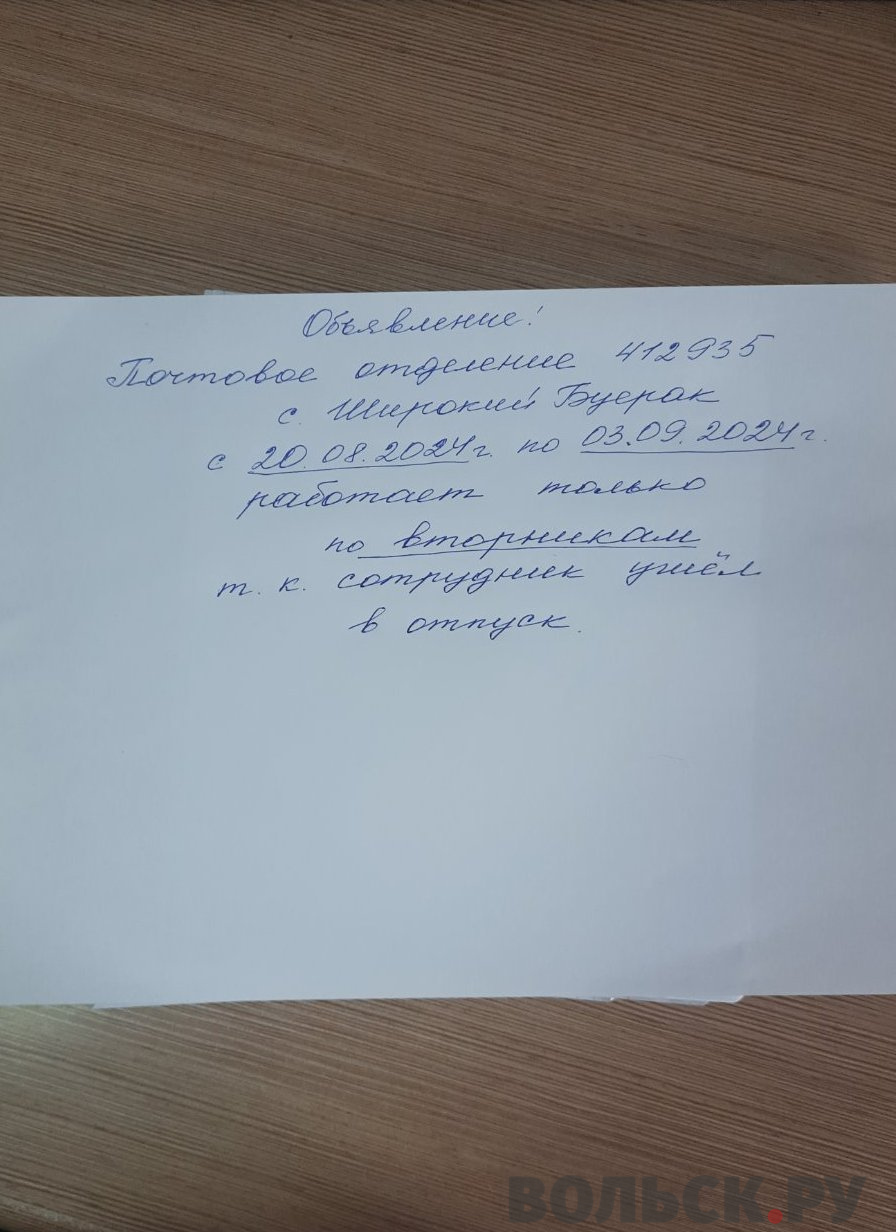 Объявление!
Почтовое отделение 412935
с. Широкий Буерак
с 20.08.2024г. по 03.09.2024г.
работает только
по вторникам
т. к. сотрудник ушёл
в отпуск.
ВОЛЬСК.РУ